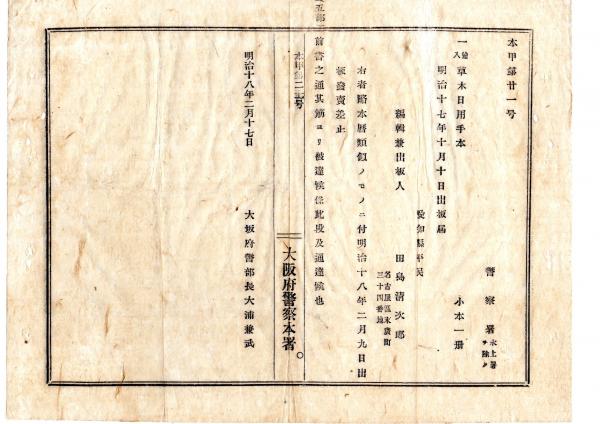 本甲第廿一号
警察署 水上署ヲ除ク
一 絵入 草木日用手本
小本一冊
明治十七年十月十日出板届
愛知縣平民
編輯兼出板人 田島清次郎
名古屋區末廣町
三十四番地
右者略本暦類似ノモノニ付明治十八年二月九日出
板發賣差止
前書之通其筋ヨリ被達候條此段及通達候也
大阪府警察本署。
本甲第二十一号
明治十八年二月十七日
大坂府警部長大浦兼武